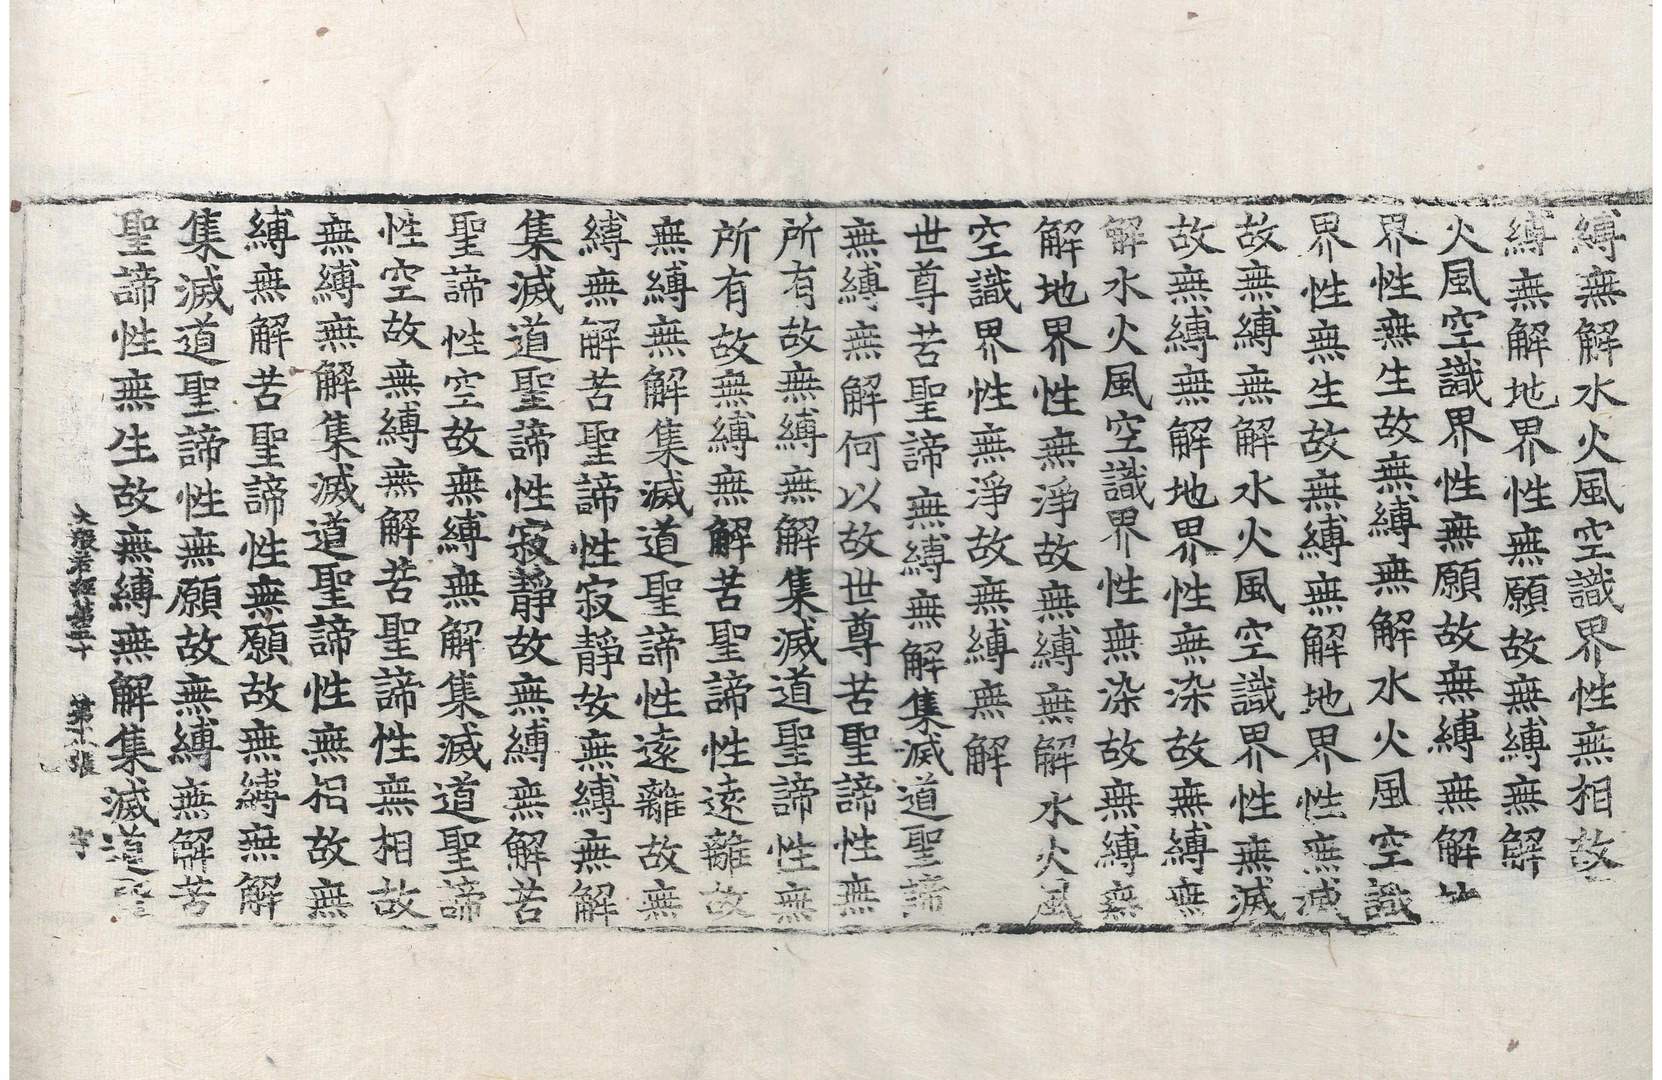 縛無解水火風空識界性無相故
縛無解地界性無願故無縛無解
火風空識界性無願故無縛無解
界性無生故無縛無解水火風空識
界性無生故無縛無解地界性無滅
故無縛無解水火風空識界性無滅
故無縛無解地界性無染故無縛無
解水火風空識界性無染故無縛無
解地界性無淨故無縛無解水火風
空識界性無淨故無縛無解
世尊苦聖諦無縛無解集滅道聖諦
無縛無解何以故世尊苦聖諦性無
所有故無縛無解集滅道聖諦性無
所有故無縛無解苦聖諦性遠離故
無縛無解集滅道聖諦性遠離故無
縛無解苦聖諦性寂靜故無縛無解
集滅道聖諦性寂靜故無縛無解苦
聖諦性空故無縛無解集滅道聖諦
性空故無縛無解苦聖諦性無相故
無縛無解集滅道聖諦性無相故無
縛無解苦聖諦性無願故無縛無解
集滅道聖諦性無願故無縛無解苦
聖諦性無生故無縛無解集滅道聖
大般若經第五十 第十八張 宇